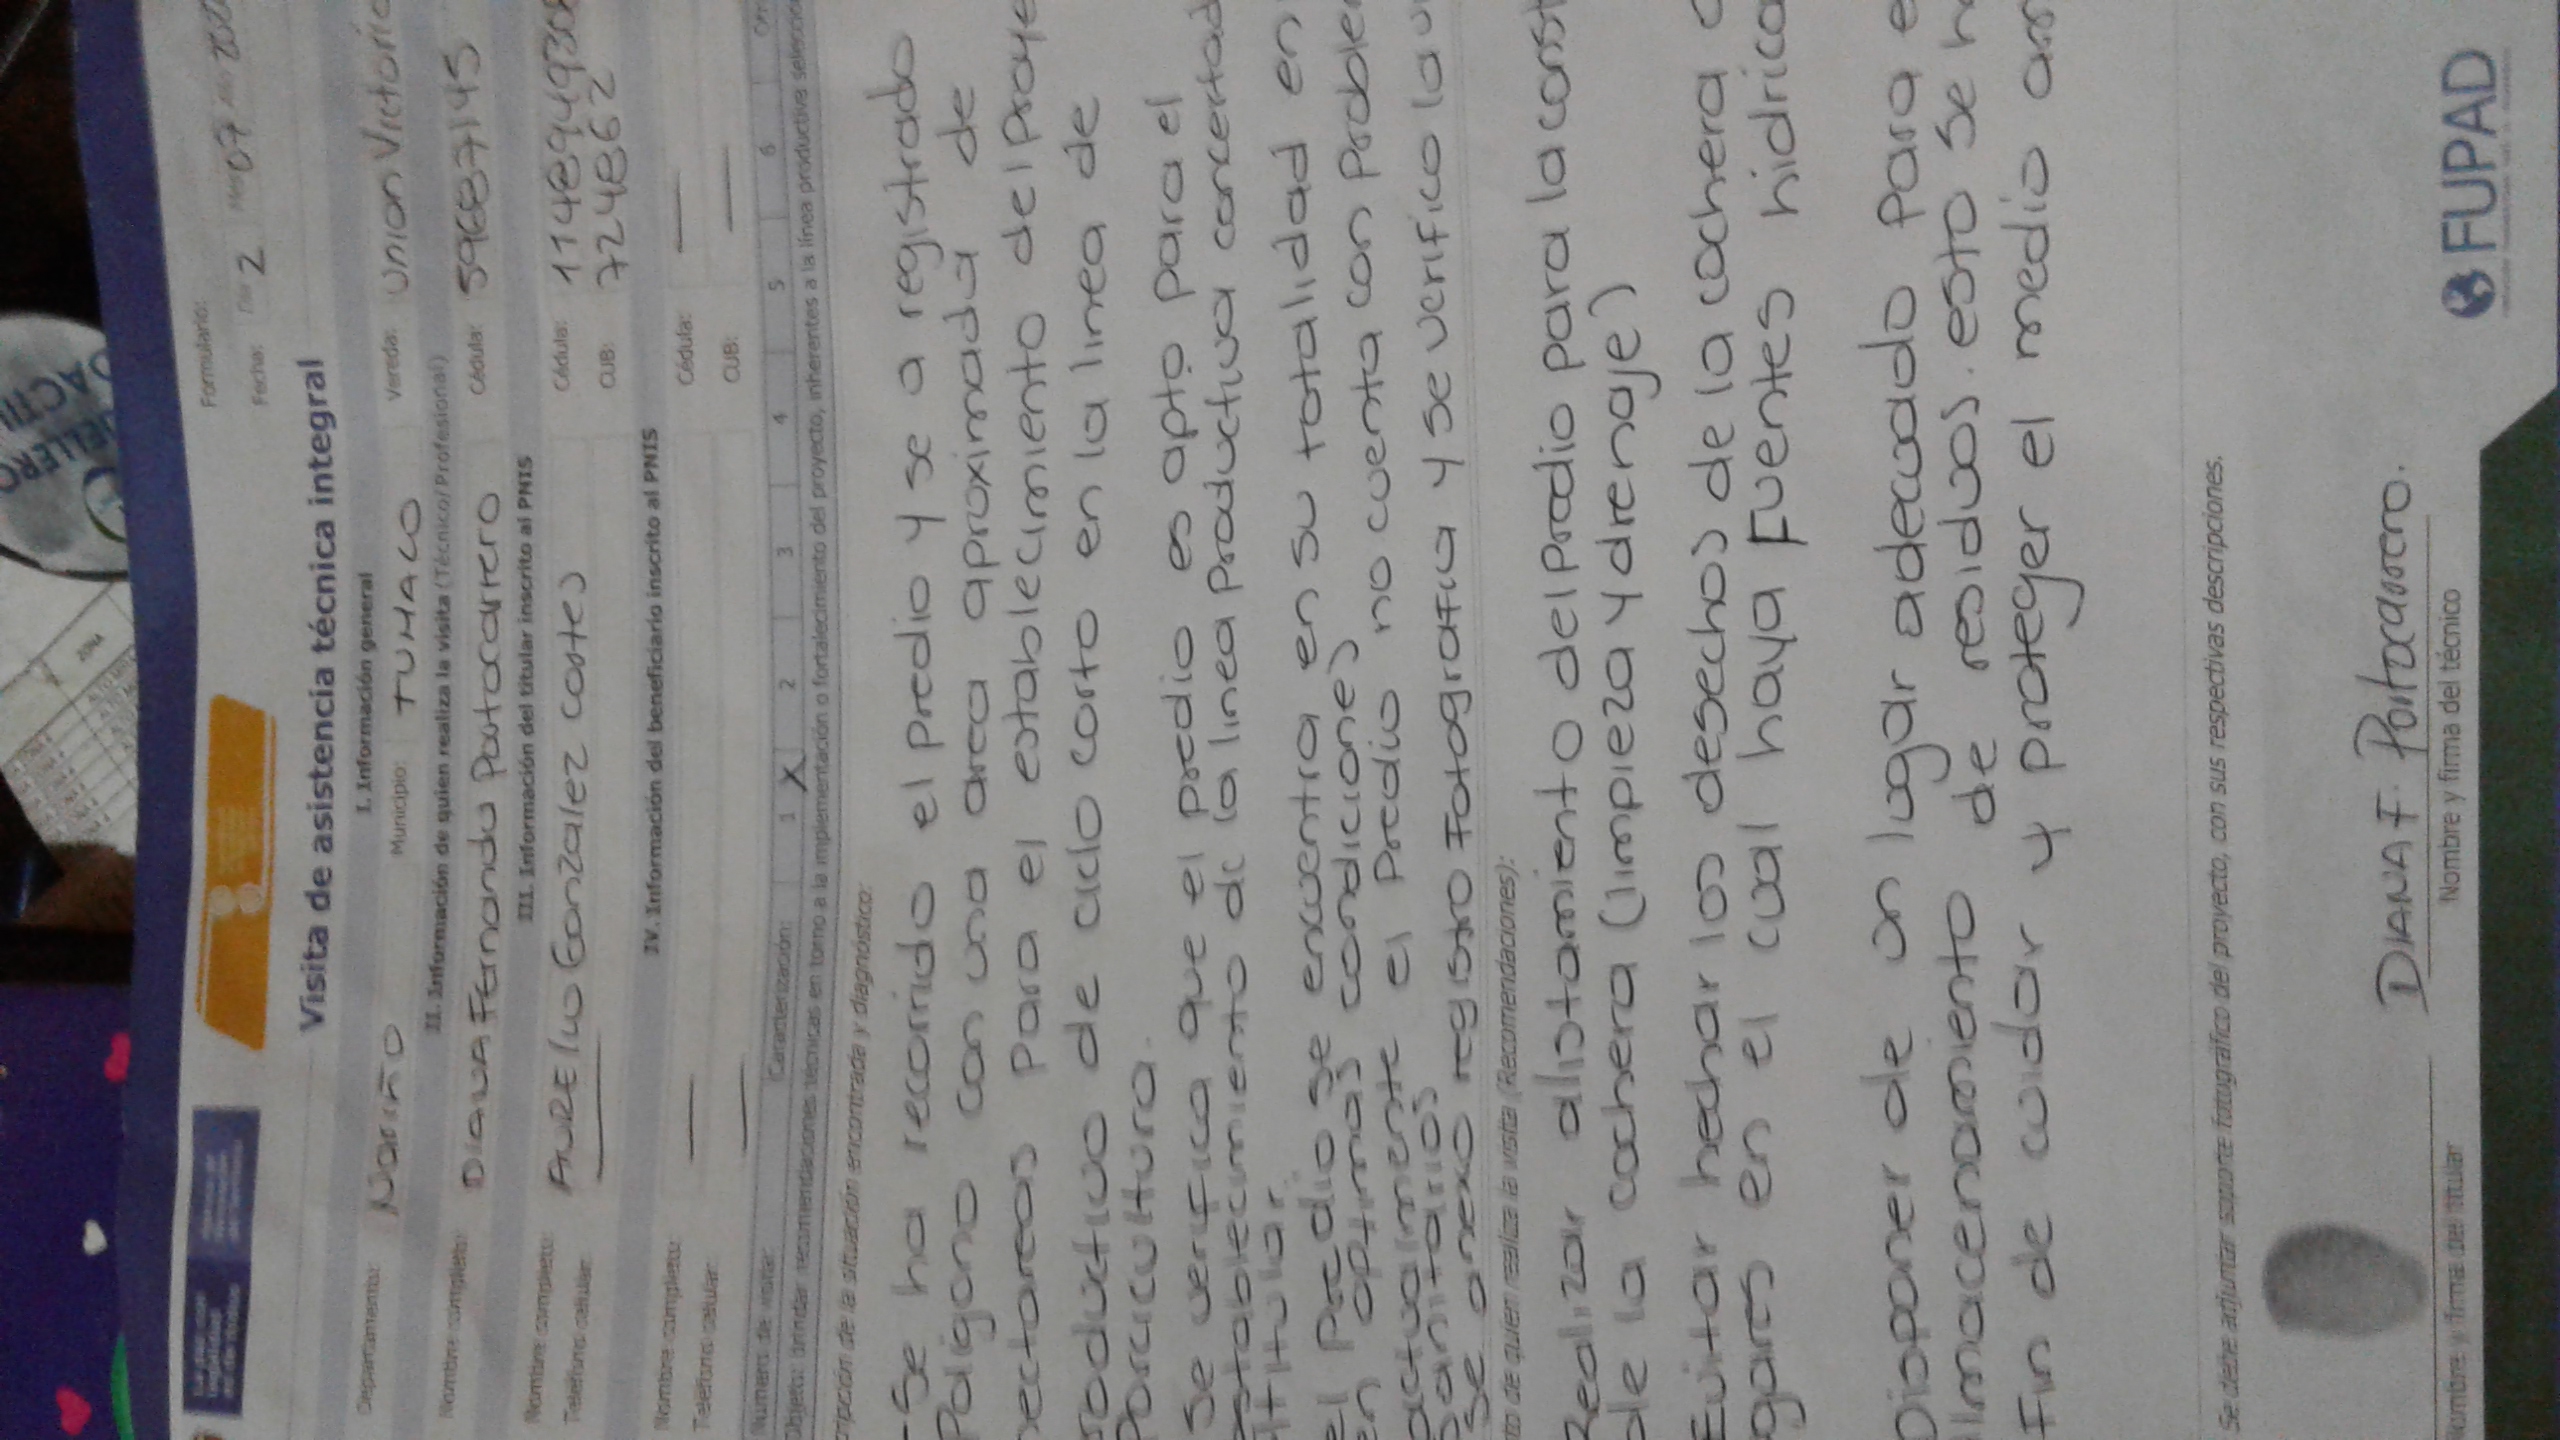 Formulario:
Fecha: Día 2 Mes 07 Año
Visita de asistencia técnica integral
I. Información general
Departamento: Nariño Municipio: TUMACO Vereda: Union Victoria
II. Información de quien realiza la visita (Técnico/Profesional)
Nombre completo: DIANA Fernanda Portocarrero Cédula: 59687145
III. Información del titular inscrito al PNIS
Nombre completo: AURElio Gonzalez cortes Cédula:
Teléfono celular: CUB: 724862
IV. Información del beneficiario inscrito al PNIS
Nombre completo: Cédula:
Teléfono celular: CUB:
Número de visita: Caracterización: 1 X 2 3 4 5 6
Objeto: brindar recomendaciones técnicas en torno a la implementación o fortalecimiento del proyecto, inherentes a la línea productiva
cripción de la situación encontrada y diagnóstico:
-Se ha recorrido el predio y se a registrado
Poligono con una area aproximada de
ectareas para el establecimiento del Proye
roductivo de ciclo corto en la linea de
Porcicultura.
Se verifica que el predio es apto para el
establecimiento de la linea productiva concertad
titular.
el predio se encuentra en su totalidad en
en optimas condiciones
actualmente el predio no cuenta con problem
sanitarios
Se anexo registro Fotografia y se verifico la u
to de quien realiza la visita (Recomendaciones):
Realizar alistamiento del predio para la const
de la cochera (limpieza y drenaje)
Evitar hechar los desechos de la cochera
gares en el cual haya Fuentes hidrica
Disponer de un lugar adecuado para e
lmacenamiento de residuos. esto se h
Fin de cuidar y proteger el medio am
Se debe adjuntar soporte fotográfico del proyecto, con sus respectivas descripciones.
DIANA F. Portocarrero.
Nombre y firma del titular Nombre y firma del técnico
FUPAD
ZONA